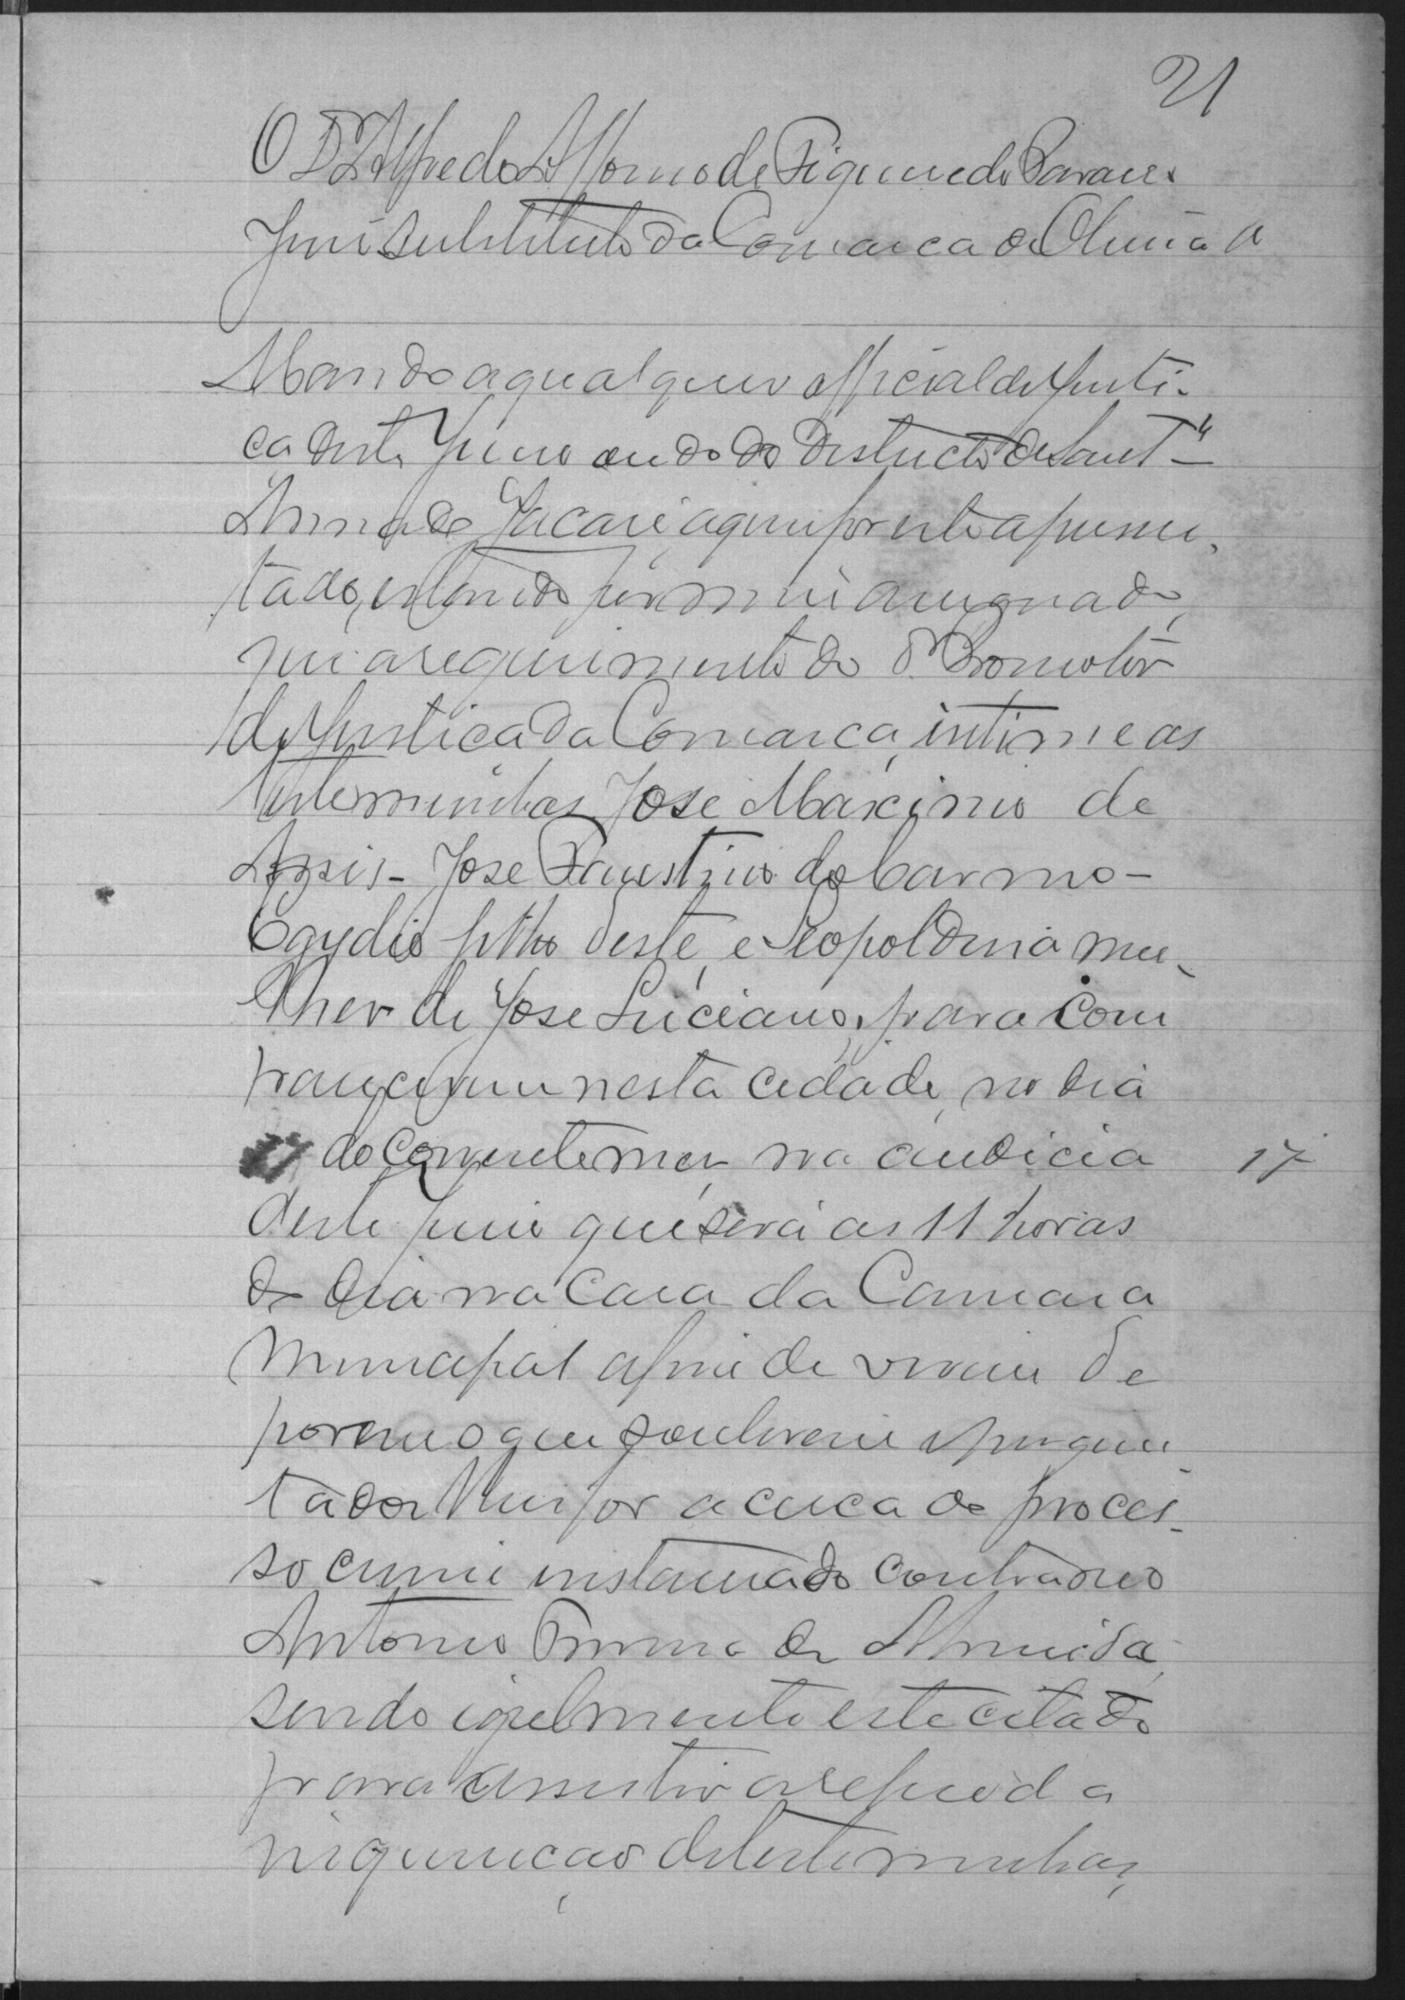 21
O Dr Alfredo Affonso de Figueiredo
Juiz substituto da Comarca de
Mando a qualquer official de Justi-
ça deste Juizo ou do do Districto de Sant'
Anna do Jacaré, aquem for este apresen-
tado, estando por mim assignado,
que a requerimento do Dr Promotor
de Justiça da Comarca, intime as
testeminhas José Maximo de
Assis - José Faustino do Carmo -
Egydio filho deste, e Leopoldina mu-
lher de José Luciano, para com
parecerem nesta cidade, no dia
do corrente mez, na audicia 17
deste Juizo que será as 11 horas
do dia na Casa da Camara
Municipal afim de virem de
porem o que souberem e pergun-
tados lhes for acerca do proces-
so crime instaurado contra o reo
Antonio de Almeida,
sendo igualmente este citado
para assistir a
inquirição de testeminhas,